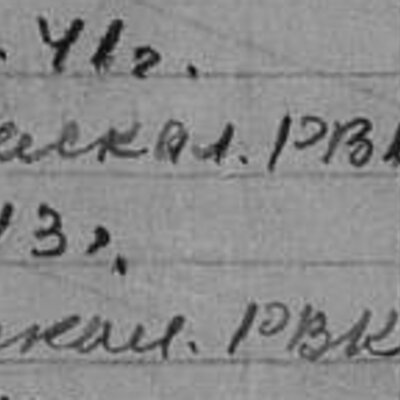 . 41г.
скал. РВК
13 г.
кал. РВК